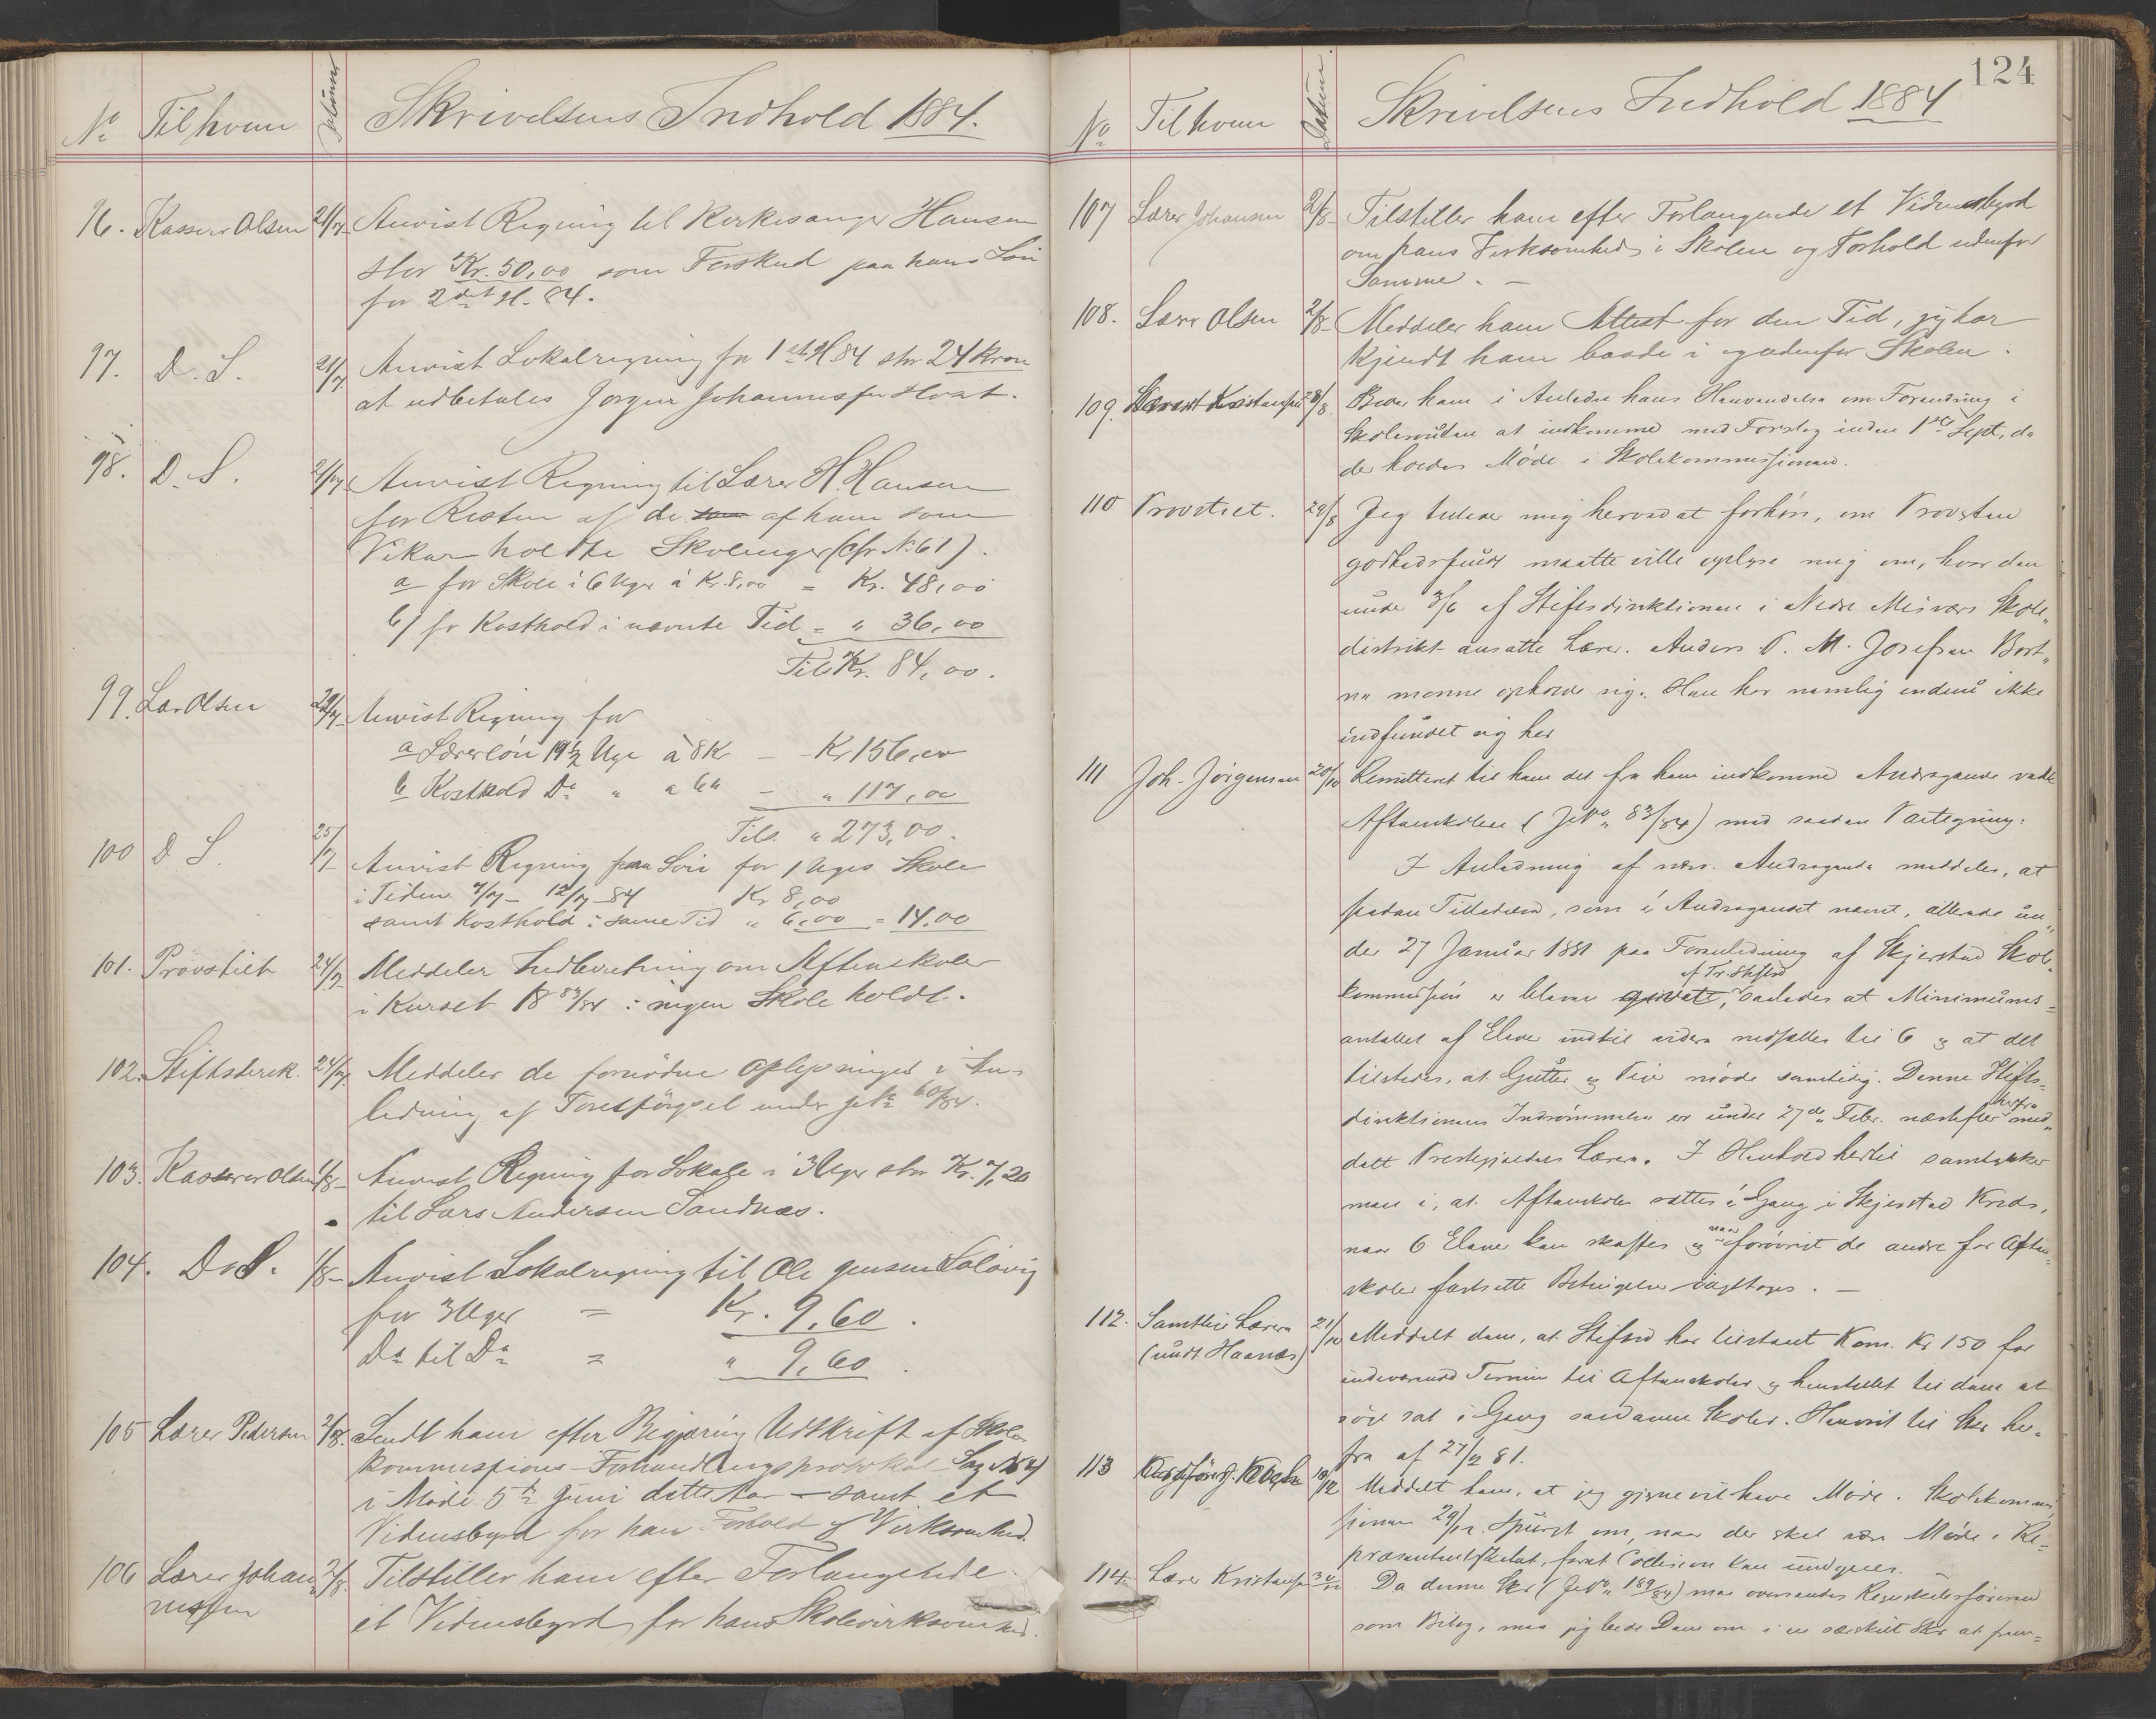 No Til hvem Datum Skrivelsens Indhold 1884.
96. Kasserer Olsen 21/7 Anvist Regning til Kirkesanger Hansen
stor Kr. 50,00 som Forskud paa hans Løn
for 2det H. 84.
97. D. S. 21/7 Anvist Lokalregning for 1ste H 84 stor 24 Kroner
at udbetales Jørgen Johannesen
98. D. S. 21/7 Anvist Regning til Lærer H. Hansen
for Resten af de som af ham som
Vikar holdte Skoleuger (cfr No 61).
a for Skole i 6 Uger á Kr. 8,00 = Kr. 48,00
b) for Kosthold i nævnte Tid = " 36,00
Tils Kr. 84,00.
99. Olsen 22/7 Anvist Regning for
a Lærerløn 19 1/2 Uge à 8 K — Kr 156,00
b Kosthold Do " a 6 " — " 117,00
Tils. " 273,00.
100 D S. 25/7 Anvist Regning paa Løn for 1 Uges Skole
i Tiden 7/7 - 12/7 - 84 Kr 8,00
samt Kosthold i samme Tid " 6,00 = 14.00
101. Provstiet 24/7 Meddeler Indberetning om Aftenskoler
i Kurset 18 83/84 : ingen Skole holdt.
102. Stiftsdirek. 24/7 Meddeler de fornødne Oplysninger i An-
ledning af Forespørgsel under JNo 60/84.
103. Kasserer Olsen 1/8 Anvist Regning for Lokale i 3 Uger stor Kr. 7,20
til Lars Andersen Sandnæs.
104. D. S. 1/8 Anvist Lokalregning til Ole Jensen
for 3 Uger = Kr. 9,60.
Do til Do = " 9,60.
105 Lærer Pedersen 2/8 Sendt ham efter Begjæring Udskrift af Skole-
kommissions-Forhandlingsprotokol Sag No 4
i Møde 5te Juni dette Aar — samt et
Vidnesbyrd for hans Forhold og Virksomhed.
106 Lærer Johan- 2/8 Tilstiller ham efter Forlangende
nessen et Vidnesbyrd for hans Skolevirksomhed.
124
No Til hvem Datum Skrivelsens Indhold 1884
107 Lærer Johansen 2/8 Tilstiller ham efter Forlangende et Vidnesbyrd
om hans Virksomhed i Skolen og Forhold udenfor
Samme. —
108. Lærer Olsen 2/8 Meddeler ham Attest for den Tid, jeg har
kjendt ham baade i og udenfor Skolen.
109. Kristensen 28/8 Beder ham i Anledn hans Henvendelse om Forandring i
Skoleruten at indkomme med Forslag inden 1ste Sept, da
der holdes Møde i Skolekommissionen.
110 Provstiet. 29/8 Jeg tillader mig herved at forhøre, om Provsten
godhedsfuldt maatte ville oplyse mig om, hvor den
under 3/6 af Stiftsdirektionen i Nedre Misvær Skole"
distrikt ansatte Lærer. Anders P. M. Josefsen Bort"
ne monne opholde sig. Han har nemlig endnu ikke
indfundet sig her
111 Joh. Jørgensen 20/10 Remitteret til ham det fra ham indkomne Andragende vedk
Aftenskolen (JNo " 83/84) med saadan Paategning:
I Anledning af nærv. Andragende meddeles, at
saadan Tilladelse, som i Andragendet nævnt, allerede un"
der 27 Januar 1881 paa Foranledning af Skjerstad Skole"
kommission er bleven givet, af Tr. Stiftsd saaledes at Minimums=
antallet af Elever indtil videre nedsættes til 6 og at det
tilstedes, at Gutter og Piger møde samtidig. Denne Stifts=
direktionens Indrømmelse er under 27de Febr. næstefter herfra med"
delt Prestegjeldets Lærere. I Henhold hertil samtykker
man i, at Aftenskole sættes i Gang i Skjerstad Kreds,
naar 6 Elever kan skaffes og naar forøvrigt de andre for Aften=
skoler fastsatte Betingelser iagttages. —
112. Samtlige Lærere 21/10 Meddelt dem, at Stiftsd har tilstaaet Kom. Kr 150 for
(undt Haanæs) indeværende Termin til Aftenskoler og henstillet til dem at
søge sat i Gang saadanne Skoler. Henvist til Skr her-
fra af 27/2 81.
113 18/12 Meddelt ham, at jeg gjerne vil have Møde i Skolekommis-
sionen 29/12. Spurgt om, naar der skal være Møde i Re-
præsentantskabet, forat Collision kan undgaaes.
114. Lærer Kristensen 30/12 Da denne Skr (JNo " 189/84) maa oversendes Regnskabsføreren
som Bilag, maa jeg bede Dem om i en særskilt Skr at frem=